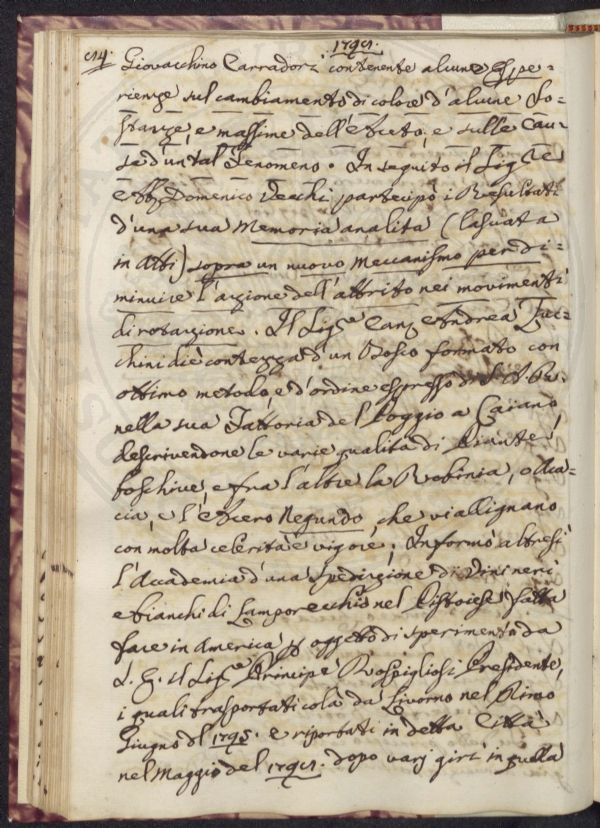 54.
Giovacchino Carradori contenente alcune Espe=
rienze sul cambiamento di colore d'alcune So=
stanze, e massime dell'Aceto, e sulle Cau=
se d'un tal Fenomeno. In seguito il Sig.re
Ab. Domenico Vecchi partecipò i Resultati
d'una sua Memoria analita (lasciata
in Atti) sopra un nuovo Meccanismo per di=
minuire l'azione dell'attrito nei movimenti
di rotazione. Il Sig.re Can. Andrea Zuc=
chini diè contezza d'un Bosco formato con
ottimo metodo, e d'ordine espresso di S. A. R.
nella sua Fattoria del Poggio a Caiano,
descrivendone le varie qualità di Piante
boschive, e fra l'altre la Robinia, o Aca=
cia, e l'Acero Negundo, che vi allignano
con molta celerità e vigore; Informò altresì
l'Accademia d'una spedizione di Vini neri
e bianchi di Lamporecchio nel Pistoiese fatta
fare in America p oggetto di sperimento da
S. E. il Sig.re Principe Rospigliosi Presidente,
i quali trasportati colà da Livorno nel Primo
Giugno del 1795. e riportati in detta Città
nel Maggio del dopo varj giri in quella